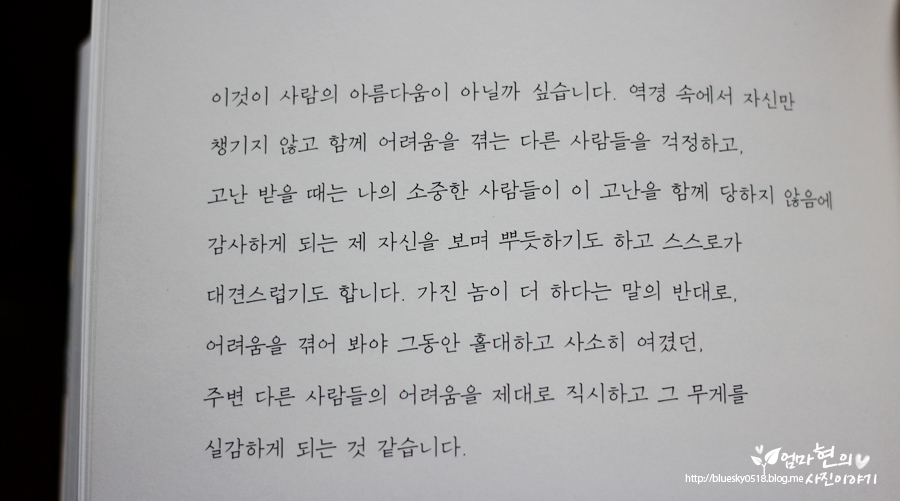 이것이 사람의 아름다움이 아닐까 싶습니다. 역경 속에서 자신만
챙기지 않고 함께 어려움을 겪는 다른 사람들을 걱정하고,
고난 받을 때는 나의 소중한 사람들이 이 고난을 함께 당하지 않음에
감사하게 되는 제 자신을 보며 뿌듯하기도 하고 스스로가
대견스럽기도 합니다. 가진 놈이 더 하다는 말의 반대로,
어려움을 겪어 봐야 그동안 홀대하고 사소히 여겼던,
주변 다른 사람들의 어려움을 제대로 직시하고 그 무게를
실감하게 되는 것 같습니다.
엄마현의
http://bluesky0518.blog.me 사진이야기